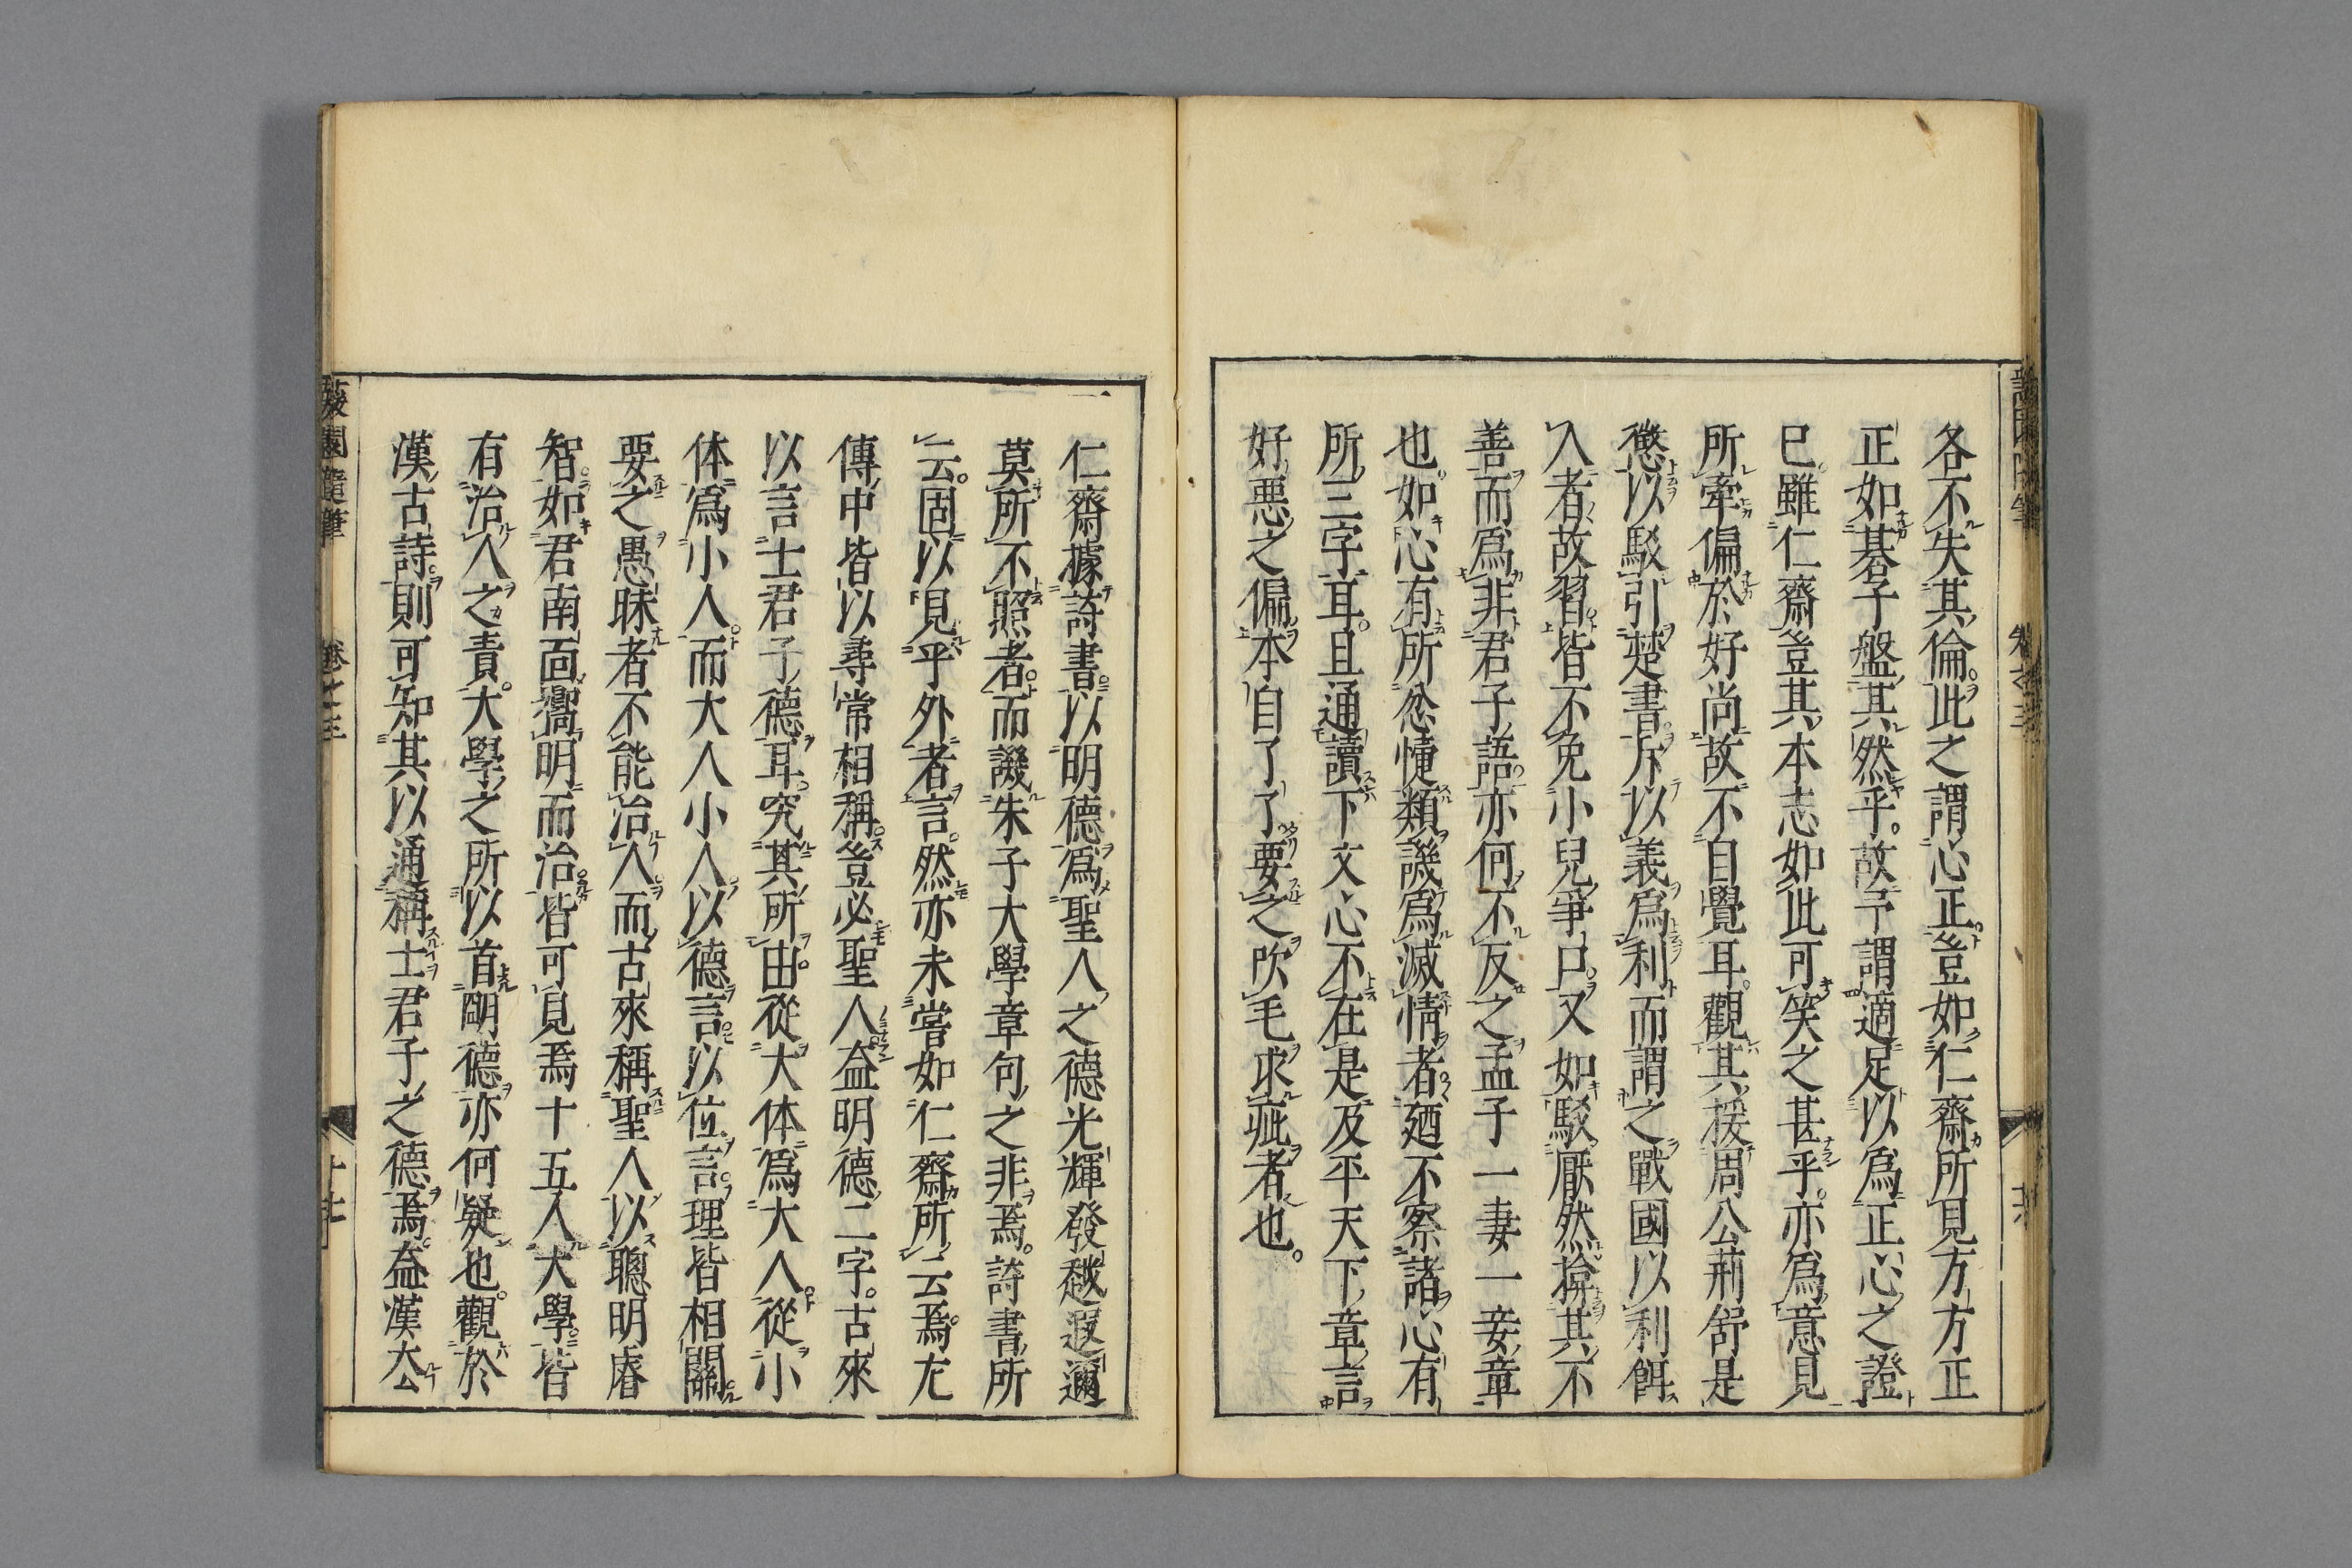 各不失其倫。此之謂心正。豈如仁齋所見方方正
正如碁子盤其然乎。故予謂適足以爲正心之證
已。雖仁齋豈其本志如此可笑之甚乎。亦爲意見
所牽偏於好尚故不自覺耳。觀其援周公荊舒是
懲以駁引楚書斥以義爲利而謂之戰國以利餌
人者故習。皆不免小兒爭口。又如駁厭然揜其不
善而爲非君子語。亦何不反之孟子一妻一妾章
也。如心有所忿懥類譏爲滅情者。廼不察諸心有
所三字耳。且通讀下文心不在是及平天下章言
好惡之偏本自了了。要之吹毛求疵者也。
一
仁齋據詩書以明德爲聖人之德光輝發越遐邇
莫所不照者。而譏朱子大學章句之非焉。詩書所
云。固以見乎外者言。然亦未嘗如仁齋所云焉。尤
傳中皆以尋常相稱。豈必聖人益明德二字。古來
以言士君子德耳。究其所由。從大体爲大人。從小
体爲小人。而大人小人。以德言。以位言。理皆相關。
要之愚昧者不能治人。而古來稱聖人以聰明睿
智。如君南面嚮明而治。皆可見焉十五入大學。皆
有治人之責。大學之所以首明德亦何疑也。觀於
漢古詩。則可知其以通稱士君子之德焉。益漢去
蘐園隨筆 卷之三 十七